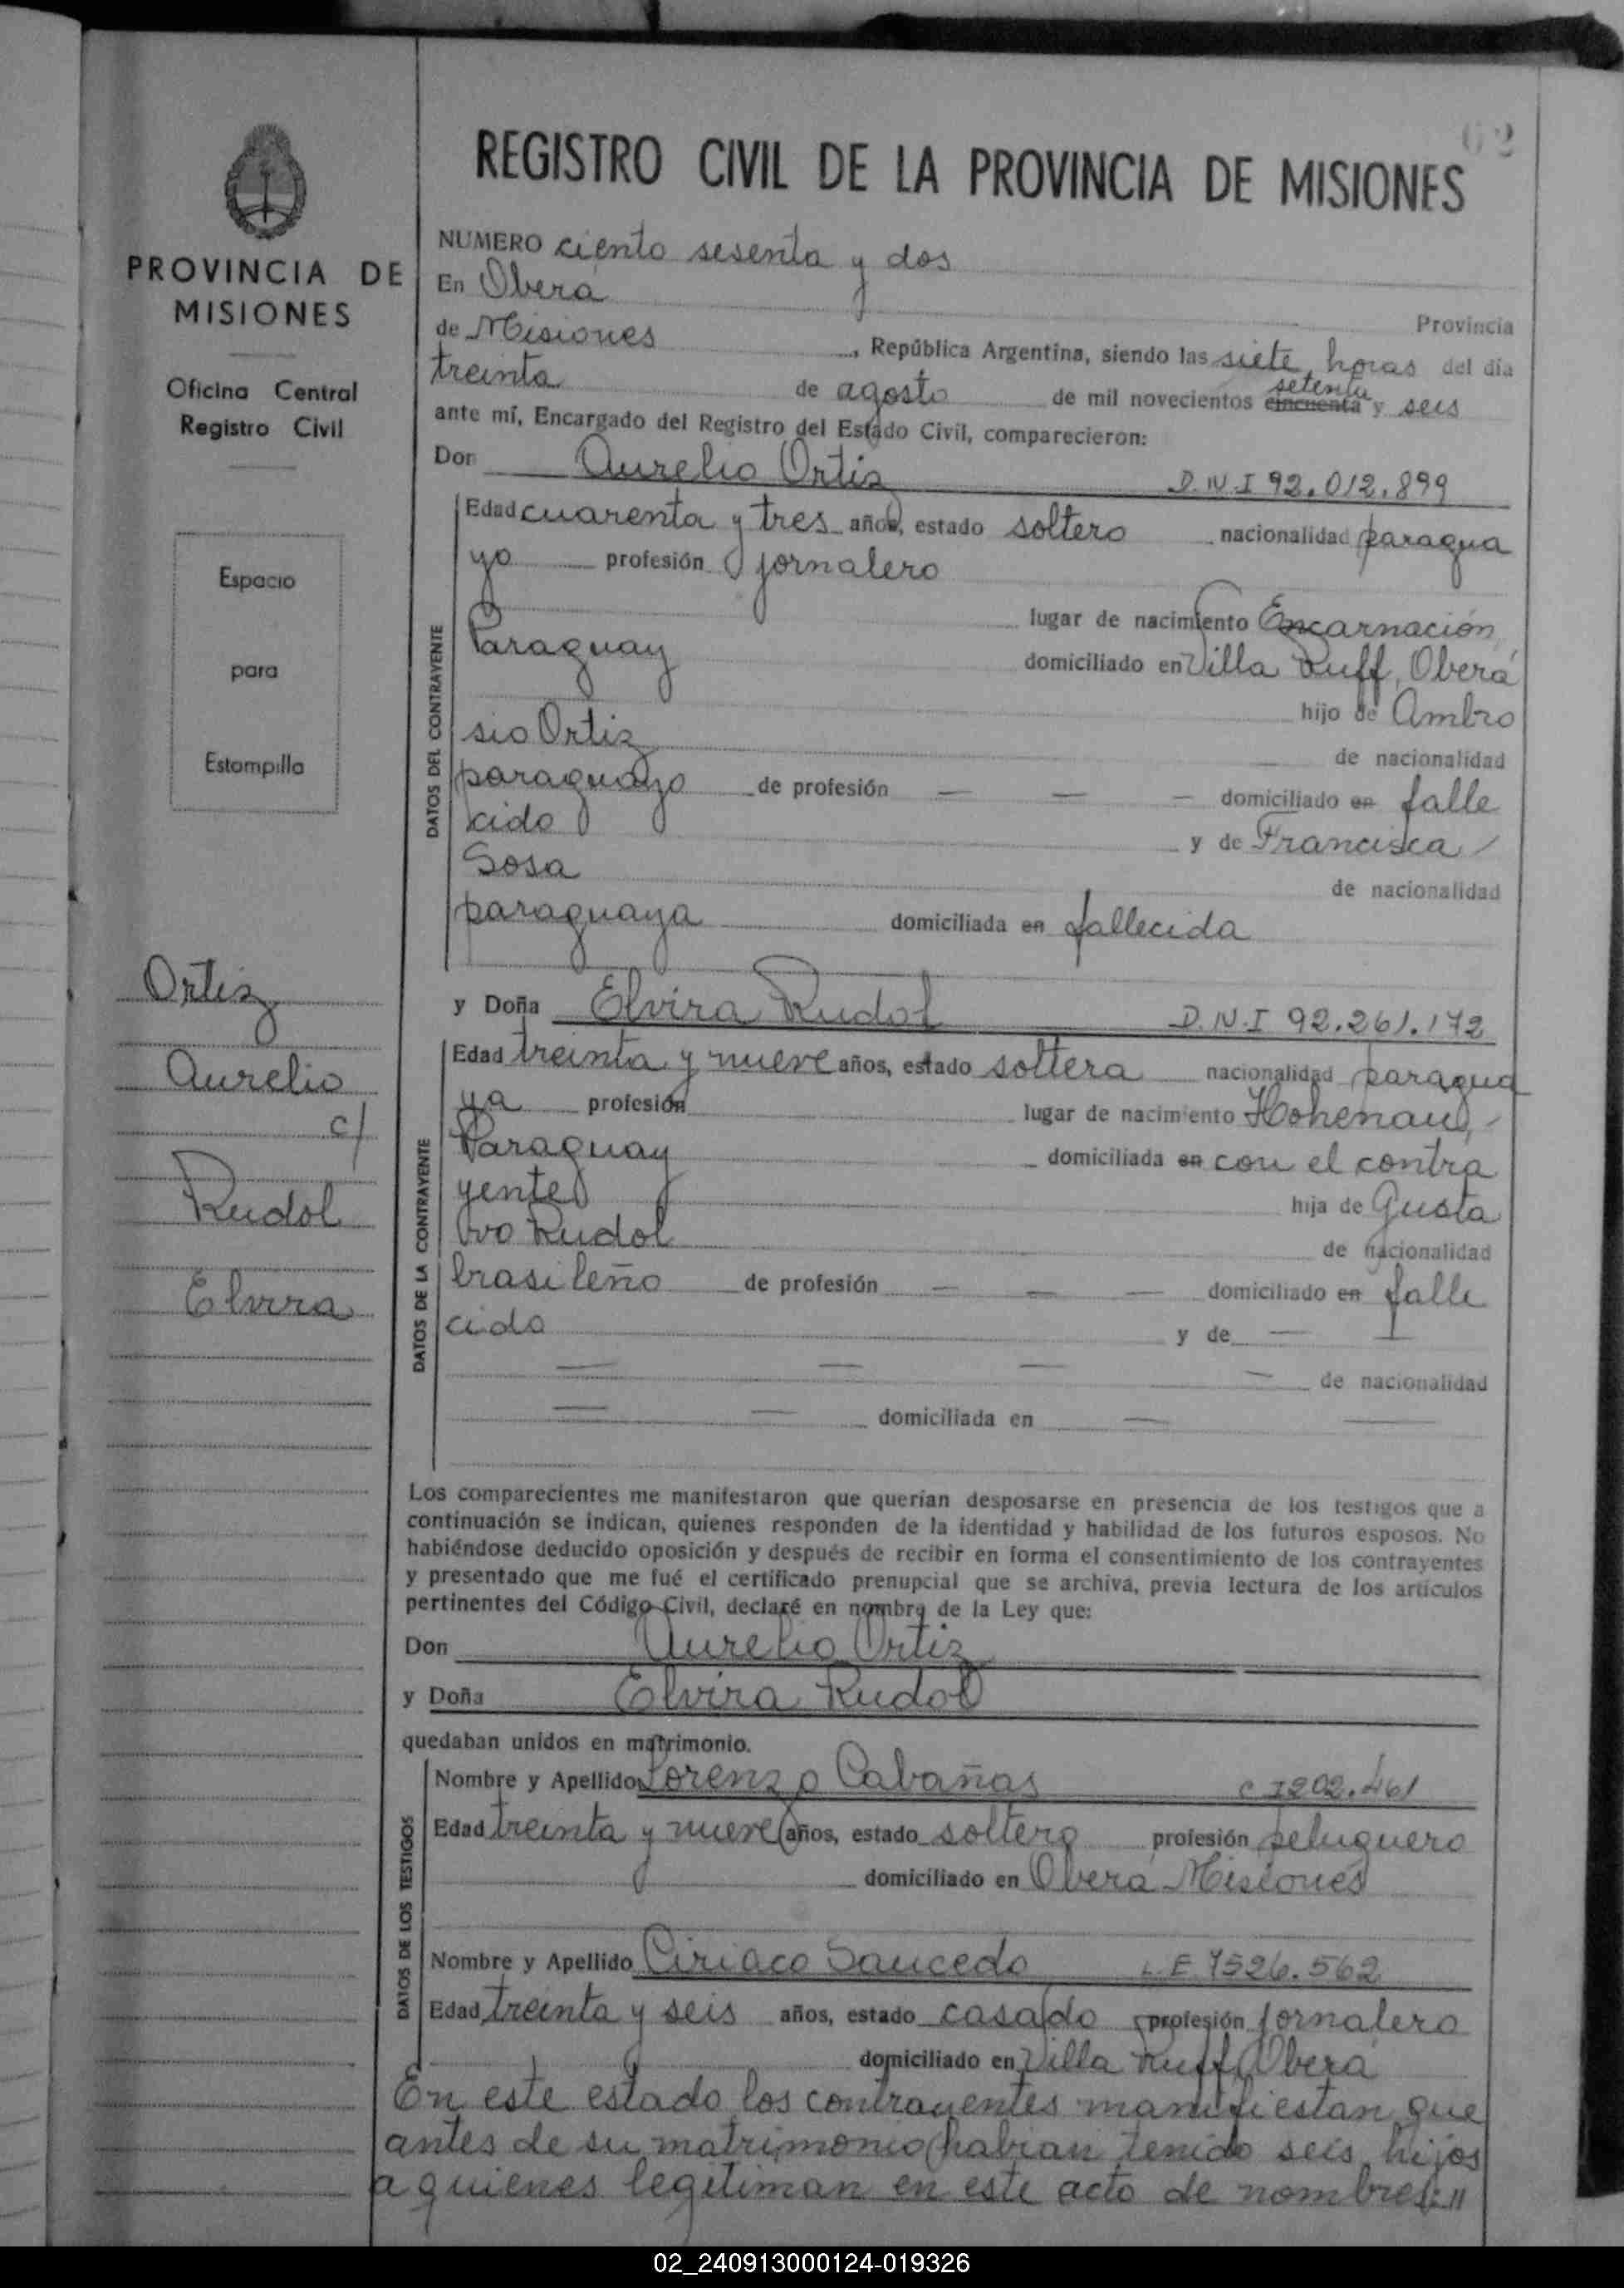 02
REGISTRO CIVIL DE LA PROVINCIA DE MISIONES
PROVINCIA DE
MISIONES
Oficina Central
Registro Civil
Espacio
para
Estampilla
Ortiz
Aurelio
c/
Rudol
Elvira
NUMERO ciento sesenta y dos
En Oberá
Provincia
de Misiones, República Argentina, siendo las siete horas del día
treinta de agosto de mil novecientos cincuenta setenta y seis
ante mí, Encargado del Registro del Estado Civil, comparecieron:
Don Aurelio Ortiz D.N.I 92.012.899
DATOS DEL CONTRAYENTE
Edad cuarenta y tres años, estado soltero nacionalidad paragua
yo profesión jornalero
lugar de nacimiento Encarnación,
Paraguay domiciliado en Villa Ruff, Oberá
hijo de Ambro
sio Ortiz de nacionalidad
paraguayo de profesión — — — domiciliado en falle
cido y de Francisca
Sosa de nacionalidad
paraguaya domiciliada en fallecida
y Doña Elvira Rudol D.N.I 92.261.172
DATOS DE LA CONTRAYENTE
Edad treinta y nueve años, estado soltera nacionalidad paragua
ya profesión lugar de nacimiento Hohenau,
Paraguay domiciliada en con el contra
yente hija de Gusta
vo Rudol de nacionalidad
brasileño de profesión — — — domiciliado en falle
cido y de —
— — — — de nacionalidad
— — domiciliada en — —
Los comparecientes me manifestaron que querían desposarse en presencia de los testigos que a
continuación se indican, quienes responden de la identidad y habilidad de los futuros esposos. No
habiéndose deducido oposición y después de recibir en forma el consentimiento de los contrayentes
y presentado que me fué el certificado prenupcial que se archiva, previa lectura de los artículos
pertinentes del Código Civil, declaré en nombre de la Ley que:
Don Aurelio Ortiz
y Doña Elvira Rudol
quedaban unidos en matrimonio.
DATOS DE LOS TESTIGOS
Nombre y Apellido Lorenzo Cabañas C I 202.461
Edad treinta y nueve años, estado soltero profesión peluquero
domiciliado en Oberá Misiones
Nombre y Apellido Ciriaco Saucedo L.E 7526.562
Edad treinta y seis años, estado casado profesión jornalero
domiciliado en Villa Ruff, Oberá
En este estado los contrayentes manifiestan que
antes de su matrimonio habian tenido seis hijos
a quienes legitiman en este acto de nombres://
02_240913000124-019326